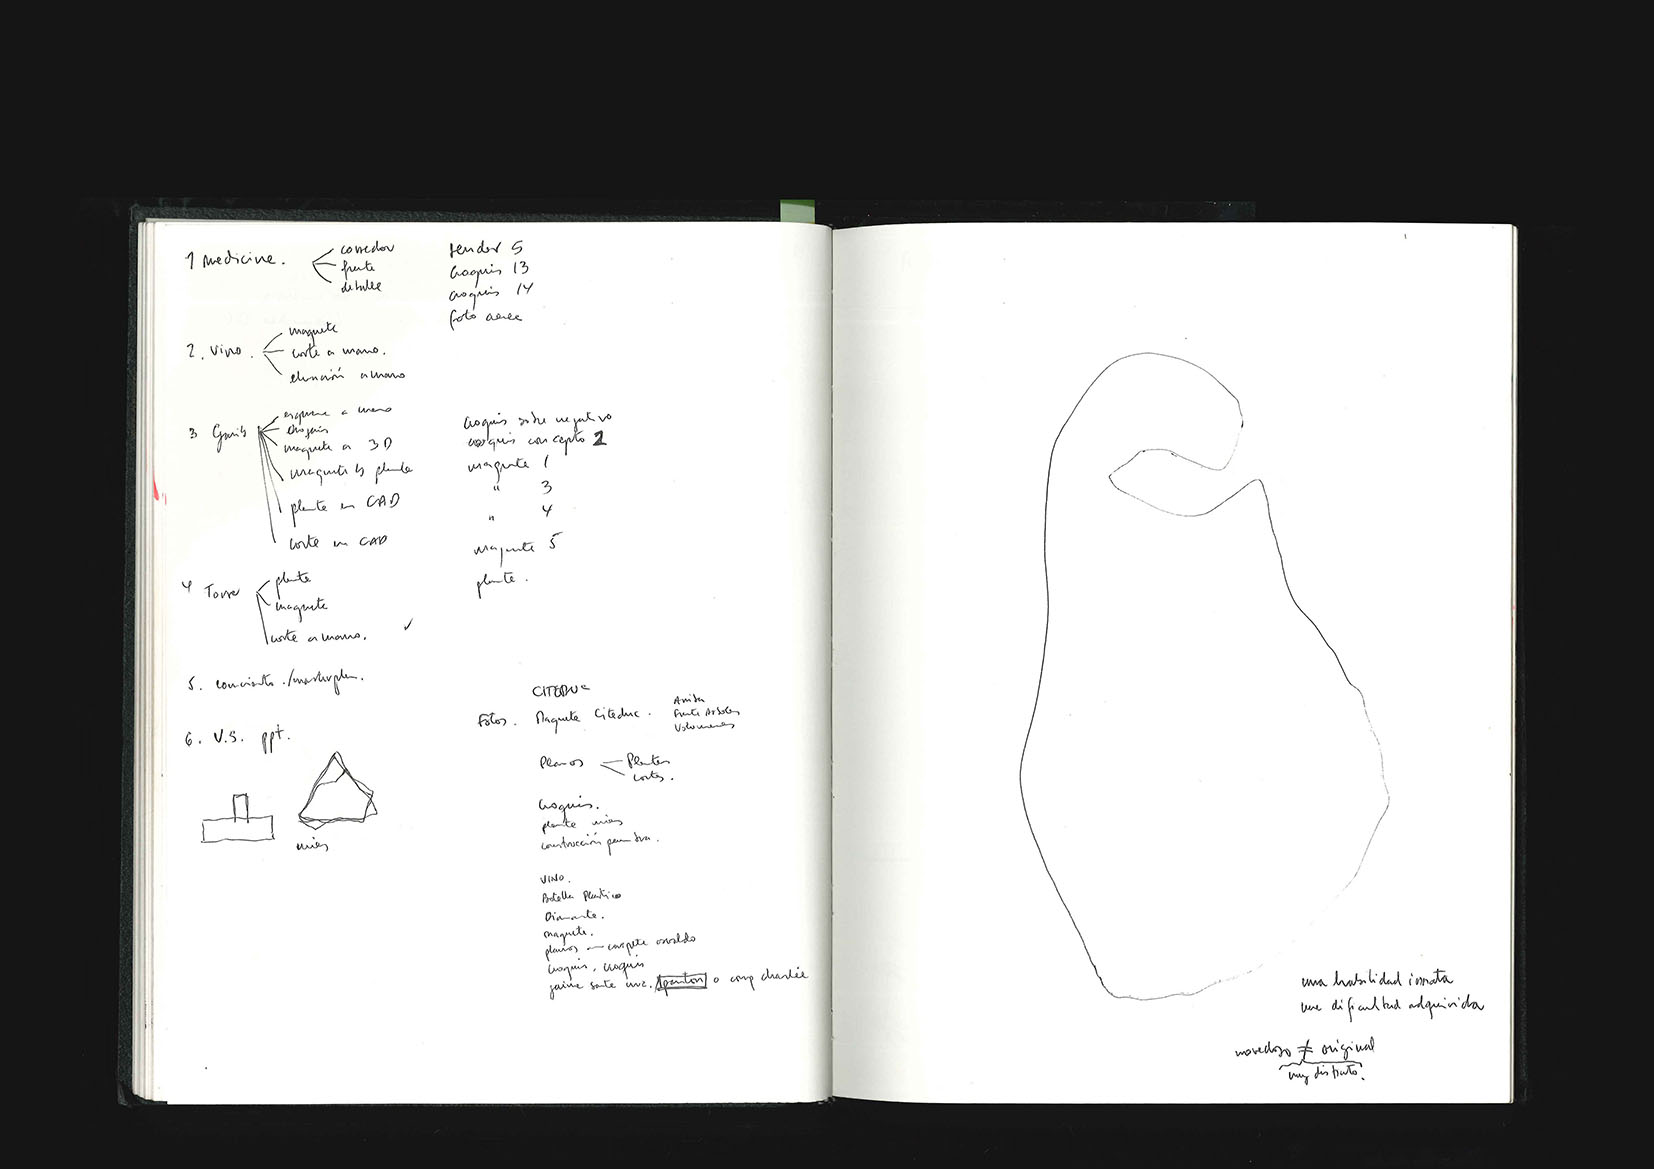 1 medicine.
corredor
frente
detalle
render 5
croquis 13
croquis 14
foto aerea
2. vino.
maquete
corte a mano.
elevación a mano
3
esquema a mano
croquis
maquete en 3D
maquete planta
planta en CAD
corte en CAD
croquis sobre negativo
croquis concepto 2
maquete 1
" 3
" 4
maquete 5
planta.
4 Torre
planta
maquete
corte a mano.
5.
6. V.S. ppt.
CITEDUC
Fotos. Maquete Citeduc.
Arriba
Frente Arboles
Volumenes
Planos
Plantas
cortes.
croquis.
planta
construcción
VINO.
Botella Plastico
Diamante.
maquete.
planos carpeta osvaldo
croquis, croquis
o comp
una habilidad innata
una dificultad adquirida
novedoso ≠ original
muy distinto.